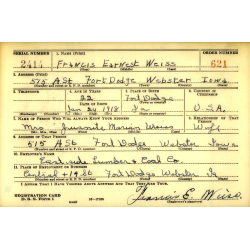 SERIAL NUMBER 1. NAME (Print) ORDER NUMBER
2414 FRANCIS EARNEST WEISS 621
2. ADDRESS (Print)
515 A St. Fort Dodge Webster Iowa
3. TELEPHONE 4. AGE IN YEARS 5. PLACE OF BIRTH 6. COUNTRY OF CITIZENSHIP
22 Fort Dodge
DATE OF BIRTH
Jan 24 1918 Ia U.S.A.
7. NAME OF PERSON WHO WILL ALWAYS KNOW YOUR ADDRESS 8. RELATIONSHIP OF THAT PERSON
Mrs. Marian Weiss Wife
9. ADDRESS OF THAT PERSON
515 A St Fort Dodge Webster Iowa
10. EMPLOYER'S NAME
Lumber & Coal Co.
11. PLACE OF EMPLOYMENT OR BUSINESS
Central & 19 St Fort Dodge Webster Ia
I AFFIRM THAT I HAVE VERIFIED ABOVE ANSWERS AND THAT THEY ARE TRUE.
REGISTRATION CARD
D. S. S. Form 1 Francis E. Weiss